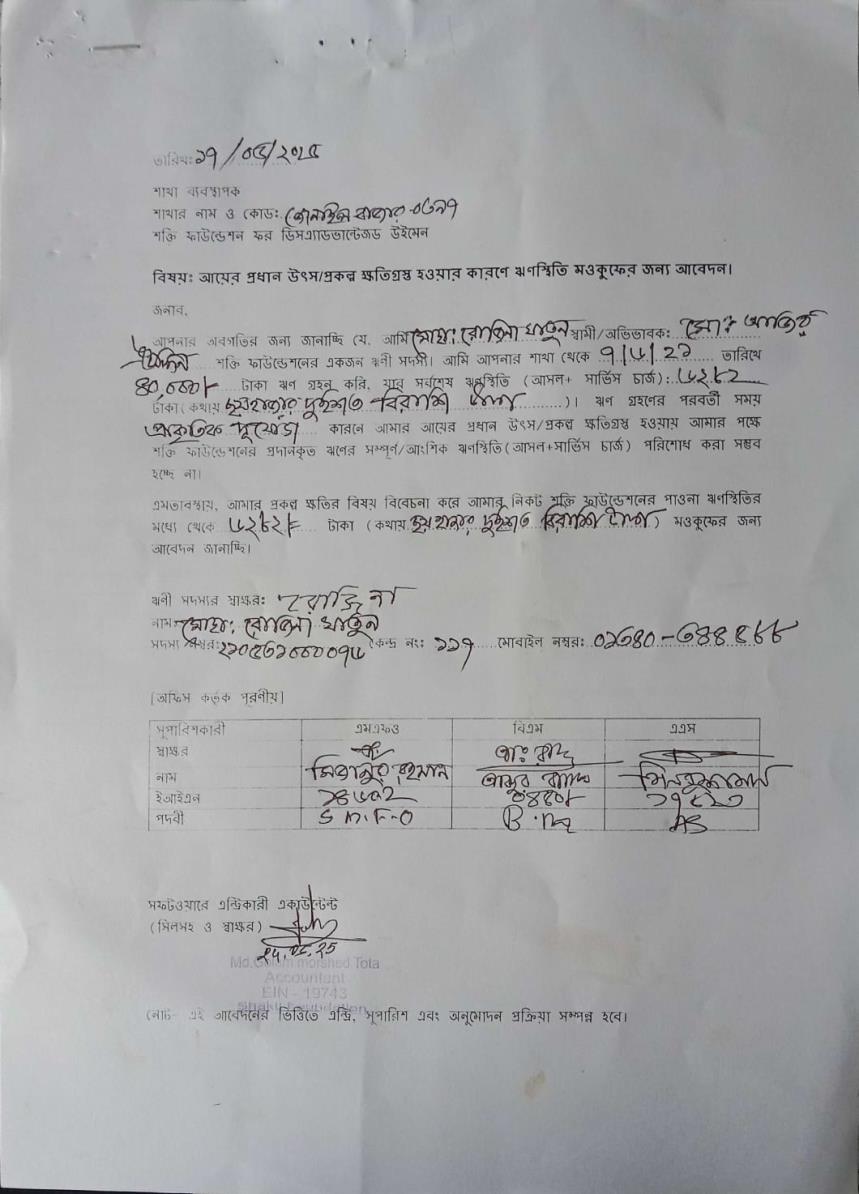 তারিখঃ ১৭/০৫/২০২৫
শাখা ব্যবস্থাপক
শাখার নাম ও কোডঃ বাজার-০৬৯৭
শক্তি ফাউন্ডেশন ফর ডিসএ্যাডভান্টেজড উইমেন
বিষয়ঃ আয়ের প্রধান উৎস/প্রকল্প ক্ষতিগ্রস্থ হওয়ার কারণে ঋণস্থিতি মওকুফের জন্য আবেদন।
জনাব,
আপনার অবগতির জন্য জানাচ্ছি যে, আমি মোছা: রোজিনা খাতুন স্বামী/অভিভাবক: মোঃ
উদ্দিন শক্তি ফাউন্ডেশনের একজন ঋণী সদস্য। আমি আপনার শাখা থেকে ৭/৬/২১ তারিখে
৪০,০০০/- টাকা ঋণ গ্রহন করি, যার সর্বশেষ ঋণস্থিতি (আসল+ সার্ভিস চার্জ): ৬২৮২
টাকা (কথায় ছয়হাজার দুইশত বিরাশি টাকা)। ঋণ গ্রহণের পরবর্তী সময়
প্রাকৃতিক দূর্যোগ কারনে আমার আয়ের প্রধান উৎস/প্রকল্প ক্ষতিগ্রস্থ হওয়ায় আমার পক্ষে
শক্তি ফাউন্ডেশনের প্রদানকৃত ঋণের সম্পূর্ণ/আংশিক ঋণস্থিতি(আসল+সার্ভিস চার্জ) পরিশোধ করা সম্ভব
হচ্ছে না।
এমতাবস্থায়, আমার প্রকল্প ক্ষতির বিষয় বিবেচনা করে আমার নিকট শক্তি ফাউন্ডেশনের পাওনা ঋণস্থিতির
মধ্যে থেকে ৬২৮২/- টাকা (কথায় ছয় হাজার দুইশত বিরাশি টাকা) মওকুফের জন্য
আবেদন জানাচ্ছি।
ঋণী সদস্যর স্বাক্ষরঃ রোজিনা
নামঃ মোছা: রোজিনা খাতুন
সদস্য নম্বর: কেন্দ্র নং: ১১৭ মোবাইল নম্বর:
[অফিস কর্তৃক পূরণীয়]
সুপারিশকারী এমএফও বিএম এএস
স্বাক্ষর
নাম মিজানুর রহমান
ইআইএন
পদবী S M.F-O B.M AS
সফটওয়ারে এন্ট্রিকারী একাউন্টেন্ট
(সিলসহ ও স্বাক্ষর)
Tota
Accountant
EIN - 19743
Shakti Foundation
নোট- এই আবেদনের ভিত্তিতে এন্ট্রি, সুপারিশ এবং অনুমোদন প্রক্রিয়া সম্পন্ন হবে।